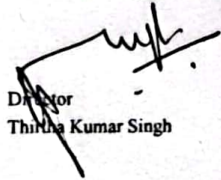 Director
Thirtha Kumar Singh